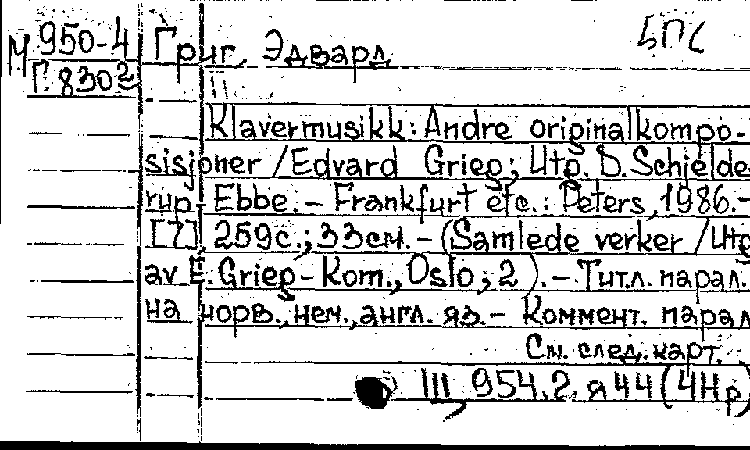 М 950-4 Григ, Эдвард БПС
Г. 830²
Klavermusikk: Andre originalkompo-
sisjoner / Edvard Grieg; Utg. D. Schjelde-
rup-Ebbe. – Frankfurt etc.: Peters, 1986.–
[7], 259с.; 33см. – (Samlede verker / Utg.
av E. Grieg-Kom., Oslo; 2). – Титл. парал.
на норв., нем., англ. яз. – Коммент. парал
См. след. карт.
Щ 954.2 я44(4Нр)